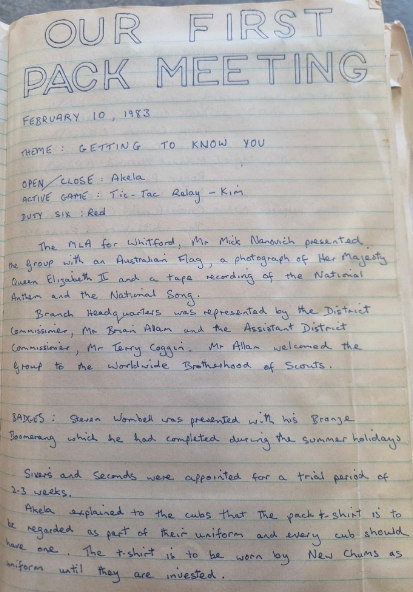 OUR FIRST
PACK MEETING
FEBRUARY 10, 1983
THEME: GETTING TO KNOW YOU
OPEN/CLOSE: Akela
ACTIVE GAME: Tic-Tac Relay - Kim
DUTY SIX: Red
The MLA for Whitford, Mr Mick Nanovich presented
the group with an Australian Flag, a photograph of Her Majesty
Queen Elizabeth II and a tape recording of the National
Anthem and the National Song.
Branch Headquarters was represented by the District
Commissioner, Mr Brian Allam and the Assistant District
Commissioner, Mr Terry Coggin. Mr Allan welcomed the
group to the worldwide Brotherhood of Scouts.
BADGES: Steven Wombell was presented with his Bronze
Boomerang which he had completed during the summer holidays
Sixers and Seconds were appointed for a trial period of
2-3 weeks.
Akela explained to the cubs that the pack t-shirt is to
be regarded as part of their uniform and every cub should
have one. The t-shirt is to be worn by New Chums as
uniform until they are invested.